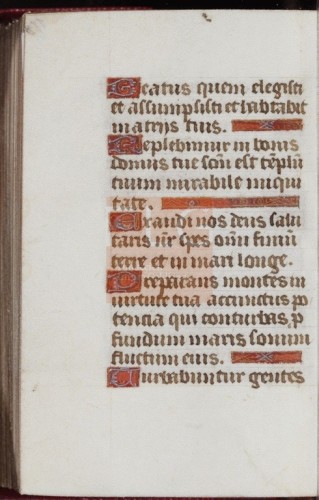 Beatus quem elegisti
et assumpsisti et habitabit
in atrijs tuis.
Replebimur in bonis
domus tue scm est templu
tuum mirabile in equi
tate.
Exaudi nos deus salu
taris nr spes omi finiu
terre et in mari longe.
Preparans montes in
virtute tua accinctus po
tencia qui conturbas p
fundum maris sonum
fluctuum eius.
Turbabuntur gentes